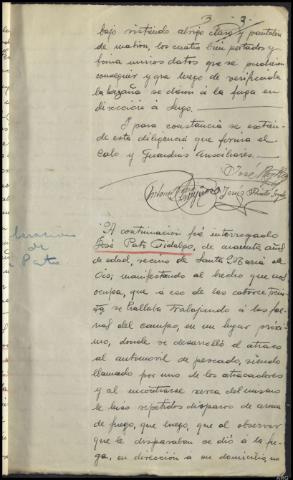 3
bajo vistiendo abrigo claro y pantalon
de mahon, los cuatro bien portados y
forma unicos datos que se pudieron
conseguir y que luego de verificada
la hazaña se dieron á la fuga en
dirección á Lugo.
Y para constancia se extien-
de esta diligencia que firma el
Cabo y Guardias Auxiliares.
José
Declaracion
de
Pato
A continuación fué interrogado
José Pato Hidalgo, de cuarenta años
de edad, vecino de Santa Maria de
manifestando al hecho que nos
ocupa, que a eso de las catorce trein-
ta se hallaba trabajando á las fae-
nas del campo, en un lugar próxi-
mo, donde se desarrolló el atraco
al automovil de pescado, siendo
llamado por uno de los atracadores
y al encontrarse cerca del mismo
le hizo repetidos disparos de arma
de fuego, que luego, que al observar
que le disparaban se dió á la fu-
ga, en dirección a su domicilio, no